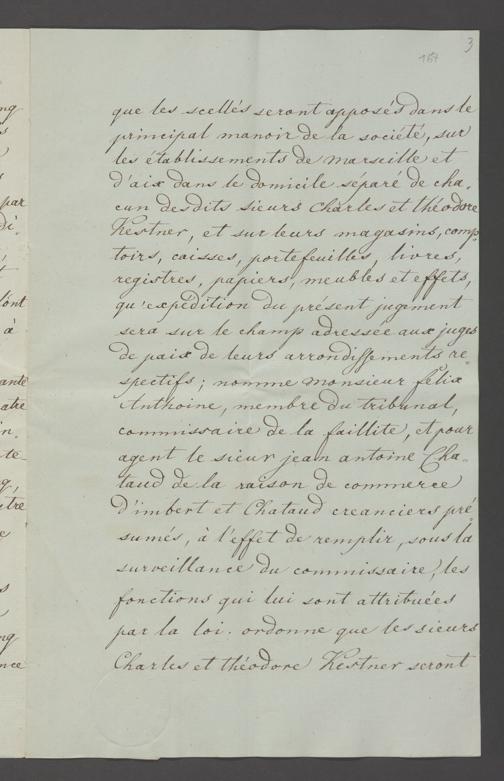 3
167
que les scellés seront apposés dans le
principal manoir de la société, sur
les établissements de marseille et
d'aix dans le domicile séparé de cha,
cun desdits sieurs Charles et théodore
Kestner, et sur leurs magasins, comp
toirs, caisses, portefeuilles, livres,
registres, papiers, meubles et effets,
qu'expédition du présent jugement
sera sur le champ adressée aux juges
de paix de leurs arrondissements re,
spectifs; nomme monsieur félix
Anthoine, membre du tribunal,
commissaire de la faillite, et pour
agent le sieur jean antoine Cha,,
taud de la raison de commerce
D'imbert et Chataud creanciers pré
sumés, à l'effet de remplir, sous la
surveillance du commissaire, les
fonctions qui lui sont attribuées
par la loi. ordonne que les sieurs
Charles et théodore Kestner seront